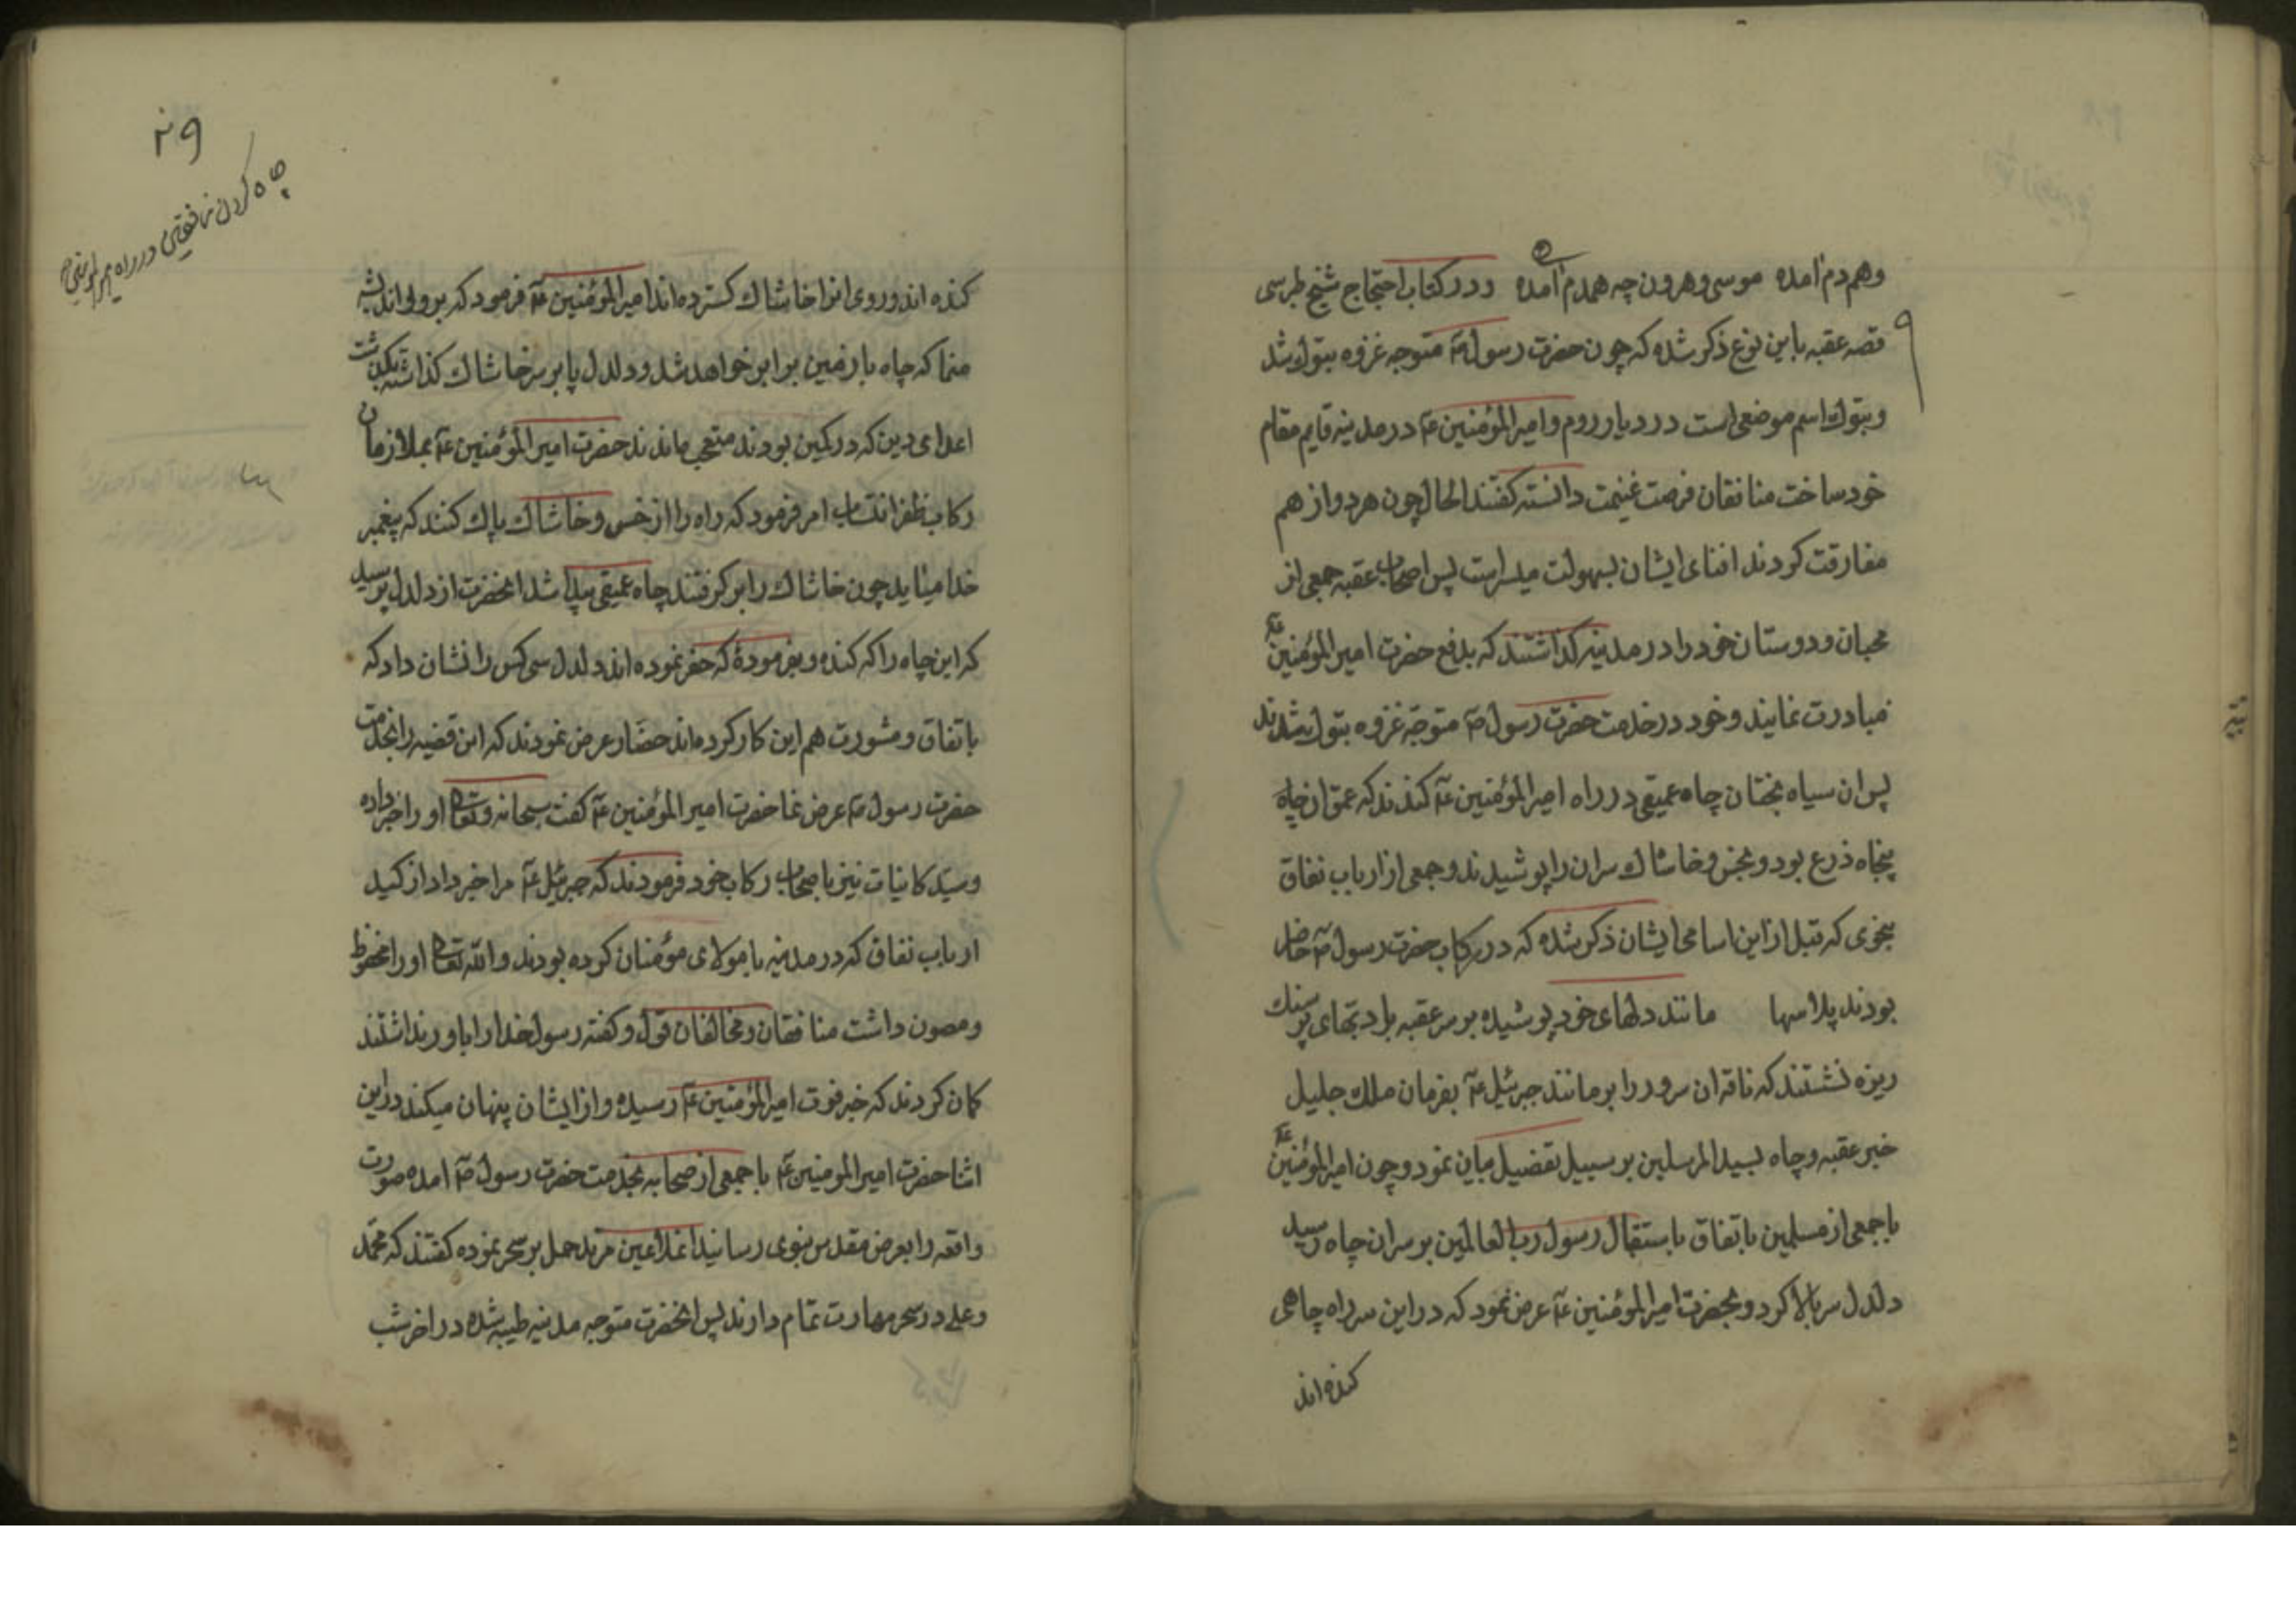 وهم دم امده موسی وهرون چه همدم امده ودر کتاب احتجاج شیخ طبرسی
قصه عقبه باین نوع ذکر شده که چون حضرت رسول ص متوجه غزوه تبوک شد
وتبوک اسم موضعی است در دیار روم وامیر المؤمنین ع در مدینه قایم مقام
خود ساخت منافقان فرصت غنیمت دانسته کفتند الحال چون هر دو از هم
مفارقت کردند افنای ایشان بسهولت میسر است پس اصحاب عقبه جمعی از
محبان ودوستان خود را در مدینه کذاشتند که بدفع حضرت امیر المؤمنین ع
مبادرت نمایند وخود در خدمت حضرت رسول ص متوجه غزوه تبوک شدند
پس ان سیاه بختان چاه عمیقی در راه امیر المؤمنین ع کندند که عمق ان چاه
پنجاه ذرع بود وبخس وخاشاک سر ان را پوشیدند وجمعی از ارباب نفاق
بنحوی که قبل از این اسامی ایشان ذکر شده که در رکاب حضرت رسول ص حاضر
بودند پلاسها مانند دلهای خود پوشیده بر سر عقبه با دبهای پر سنک
ریزه نشستند که ناقه ان سرور را برمانند جبرئیل ع بفرمان ملک جلیل
خبر عقبه وچاه بسید المرسلین بر سبیل تفصیل بیان نمود وچون امیر المؤمنین ع
با جمعی از مسلمین باتفاق باستقبال رسول رب العالمین بر سر ان چاه رسید
دلدل سر بالا کرد وبحضرت امیر المؤمنین ع عرض نمود که در این سر راه چاهی
کنده اند
۲۹
چاه کردن منافقین در راه امیر المؤمنین
کنده اند وروی انرا خاشاک کسترده اند امیر المؤمنین ع فرمود که برو واندیشه
منما که چاه با زمین برابر خواهد شد ودلدل پا بر سر خاشاک کذاشته بکذشت
اعدای دین که در کمین بودند متعجب ماندند حضرت امیر المؤمنین ع بملازمان
رکاب ظفر انتساب امر فرمود که راه را از خس وخاشاک پاک کنند که پیغمبر
خدا میاید چون خاشاک را بر کرفتند چاه عمیقی پیدا شد انحضرت از دلدل پرسید
که این چاه را که کنده وبفرمودۀ که حفر نموده اند دلدل سی کس را نشان داد که
باتفاق ومشورت هم این کار کرده اند حضار عرض نمودند که این قضیه را بخدمت
حضرت رسول ص عرض نما حضرت امیر المؤمنین ع کفت سبحانه وتعالی او را خبر داده
وسید کاینات نیز باصحاب رکاب خود فرمودند که جبرئیل ع مرا خبر داد از کید
ارباب نفاق که در مدینه با مولای مؤمنان کرده بودند والله تعالی او را محفوظ
ومصون داشت منافقان ومخالفان قول وکفته رسول خدا را باور نداشتند
کمان کردند که خبر فوت امیر المؤمنین ع رسیده واز ایشان پنهان میکند در این
اثنا حضرت امیر المومنین ع با جمعی از صحابه بخدمت حضرت رسول ص امده صورت
واقعه را بعرض مقدس نبوی رسانید حمل بر سحر نموده کفتند که محمد
وعلی در سحر مهارت تمام دارند پس انحضرت متوجه مدینه طیبه شده در اخر شب